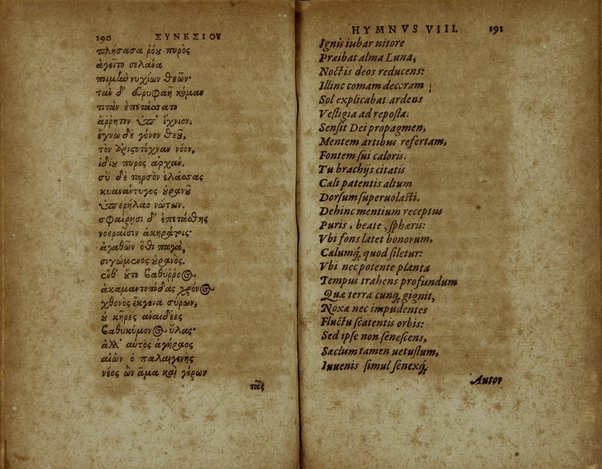 190 ΣΥΝΕΣΙΟΥ
πλήσασα ῥόου πυρὸς
ἁγεῖτο σελάνα
ποιμὴν νυχίων θεῶν·
τὰν δ' εὐρυφαῆ κόμαν
τιτὰν ἐπετάσσατο
ἄῤῥητον ὑπ' ἴχνιον.
ἔγνω δὲ γόνον θεοῦ,
τὸν ἀριστοτέχναν νόον,
ἰδίου πυρὸς ἀρχάν.
σὺ δὲ ταρσὸν ἐλάσσας
κυανάντυγος οὐρανοῦ
ὑπερήλαο νώτων.
σφαίρῃσι δ' ἐπεστάθης
νοεραῖσιν ἀκηράτοις·
ἀγαθῶν ὅθι παγὰ,
σιγώμενος οὐρανός.
ἔνθ' οὔτε βαθύῤῥοος
ἀκαμαντοπόδας χρόνος
χθονὸς ἔκγονα σύρων,
οὐ κῆρες ἀναιδέες
βαθυκύμονος ὕλας·
ἀλλ' αὐτὸς ἀγήραος
αἰὼν ὁ παλαιγενὴς
νέος ὢν ἅμα καὶ γέρων
τᾶς
HYMNVS VIII. 191
Ignis iubar nitore
Præibat alma Luna,
Noctis deos reducens:
Illinc comam decoram
Sol explicabat ardens
Vestigia ad reposta:
Sensit Dei propagmen,
Mentem artibus refertam,
Fontem sui caloris.
Tu brachijs citatis
Cæli patentis altum
Dorsum superuolasti.
Dehinc mentium receptus
Puris, beate, sphæris:
Vbi fons latet bonorum,
Cælumq́; quod siletur:
Vbi nec potente planta
Tempus trahens profundum
Quæ terra cunq; gignit,
Noxæ nec impudentes
Fluctu scatentis orbis:
Sed ipse non senescens,
Sæclum tamen uetustum,
Iuuenis simul senexq́;
Autor